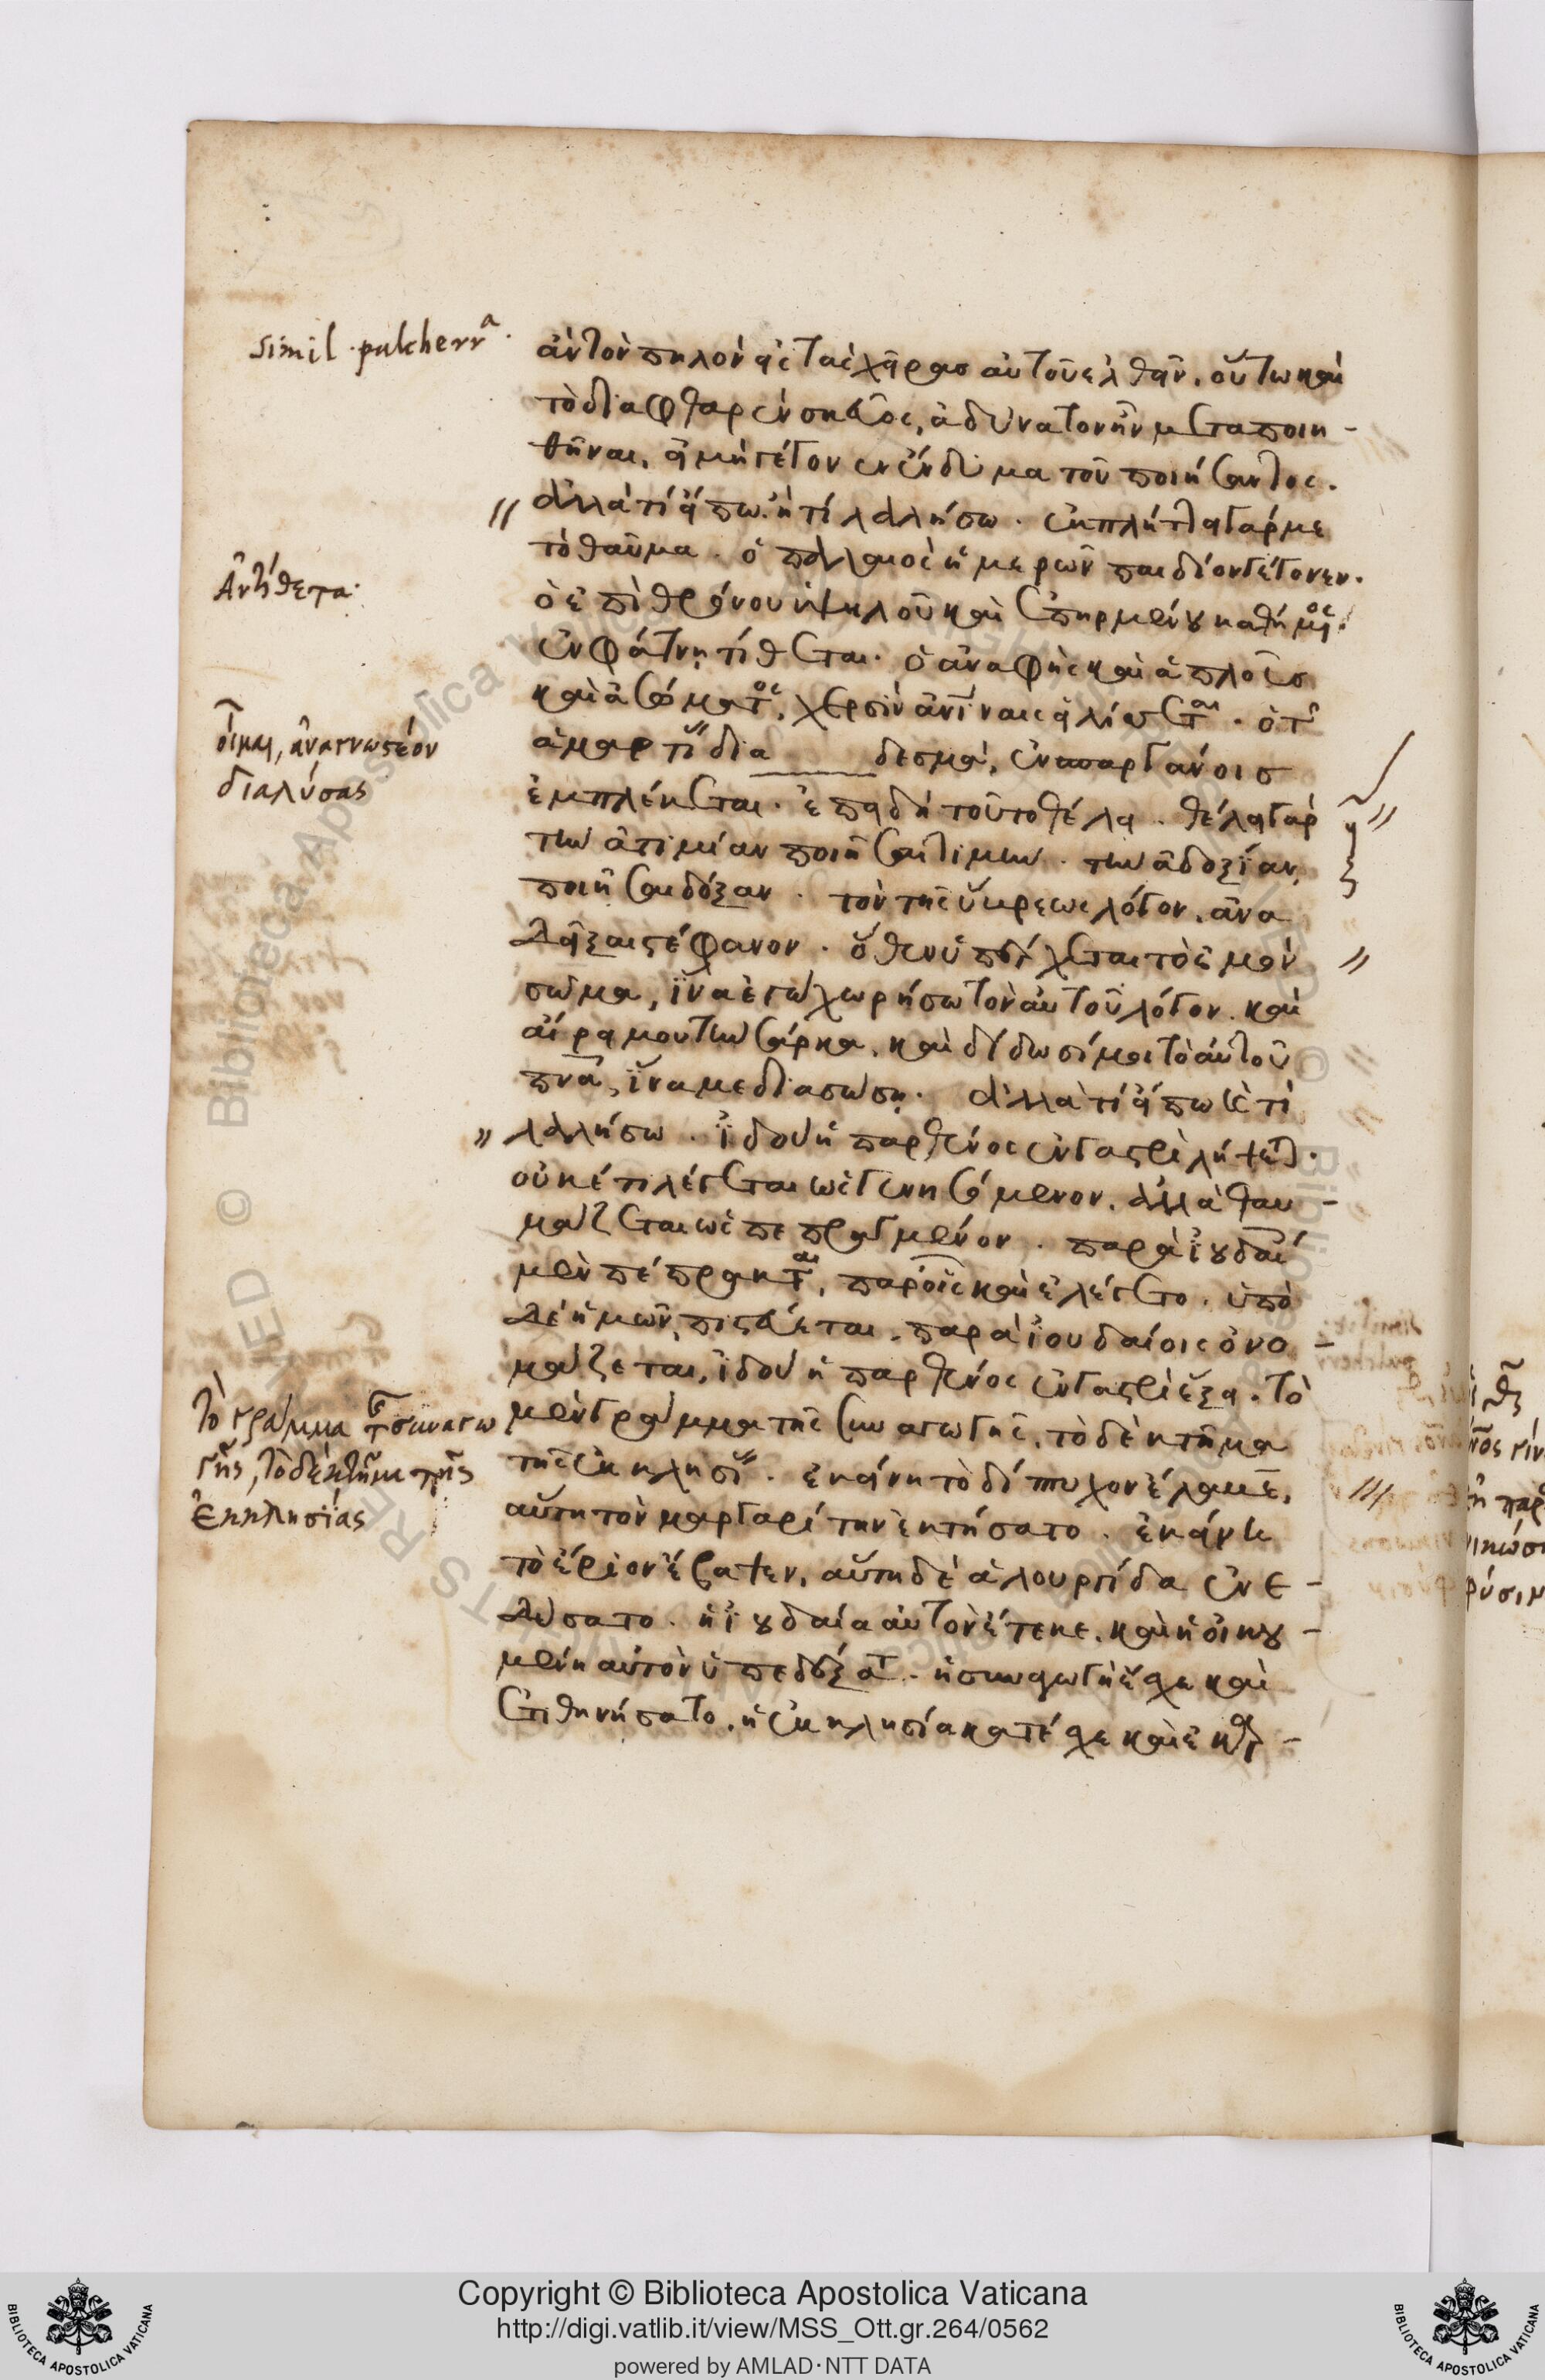 simil. pulcherrᵃ.
Ἀντίθετα.
οἶμαι, ἀναγνωστέον
διαλύσας
τὸ γράμμα τῆς συναγω
γῆς, τὸ δὲ κτῆμα τῆς
ἐκκλησίας
ἂν τὸν πηλὸν εἰς τὰς χεῖρας αὐτοῦ ἐλθεῖν. οὕτω καὶ
τὸ διαφθαρὲν σκεῦος, ἀδύνατον ἦν μεταποιη-
θῆναι, εἰ μὴ γέγονεν ἔνδυμα τοῦ ποιήσαντος.
ἀλλὰ τί εἴπω. ἢ τί λαλήσω. ἐκπλήττει γάρ με
τὸ θαῦμα. ὁ παλαιὸς ἡμερῶν παιδίον γέγονεν.
ὁ ἐπὶ θρόνου ὑψηλοῦ καὶ ἐπηρμένου καθήμενος.
ἐν φάτνῃ τίθεται. ὁ ἀναφὴς καὶ ἁπλοῦς
καὶ ἀσώματος, χερσὶν ἀνίναις εἱλίσσεται. ὁ τῆς
ἁμαρτίας δια δεσμά, ἐν σπαργάνοις
ἐμπλέκεται. ἐπειδὴ τοῦτο θέλει. θέλει γὰρ
τὴν ἀτιμίαν ποιῆσαι τιμήν. τὴν ἀδοξίαν,
ποιῆσαι δόξαν. τὸν τῆς ὕβρεως λόγον, ἀνα
δεῖξαι στέφανον. ὅθεν ὑπέρχεται τὸ ἐμὸν
σῶμα, ἵνα ἐγὼ χωρήσω τὸν αὐτοῦ λόγον. καὶ
αἴρει μου τὴν σάρκα, καὶ δίδωσί μοι τὸ αὐτοῦ
πνᾶ, ἵνα με διασώσῃ. ἀλλὰ τί εἴπω ἢ τί
λαλήσω. ἰδοὺ ἡ παρθένος ἐν γαστρὶ λήψεται.
οὐκέτι λέγεται ὡς γενησόμενον. ἀλλὰ θαυ-
μάζεται ὡς πεπραγμένον. παρὰ ἰουδαίοις
μὲν πέπρακται, παρ' οἷς καὶ ἐλέγετο. ὑπὸ
δὲ ἡμῶν, πιστεύεται. παρὰ ἰουδαίοις ὀνο-
μάζεται, ἰδοὺ ἡ παρθένος ἐν γαστρὶ ἕξει. τὸ
μὲν γράμμα τῆς συναγωγῆς, τὸ δὲ κτῆμα
τῆς ἐκκλησίας. ἐκείνη τὸ δίπτυχον ἔλαβε,
αὕτη τὸν μαργαρίτην ἐκτήσατο. ἐκείνη
τὸ ἔριον ἔβαψεν, αὕτη δὲ ἁλουργίδα ἐνε-
δύσατο. ἡ ἰουδαία αὐτὸν ἔτεκε, καὶ ἡ οἰκου-
μένη αὐτὸν ὑπεδέξατο. ἡ συναγωγὴ ἔσχε καὶ
ἐτιθηνήσατο, ἡ ἐκκλησία κατέσχε καὶ ἐκαρ-
Copyright © Biblioteca Apostolica Vaticana
http://digi.vatlib.it/view/MSS_Ott.gr.264/0562
powered by AMLAD·NTT DATA